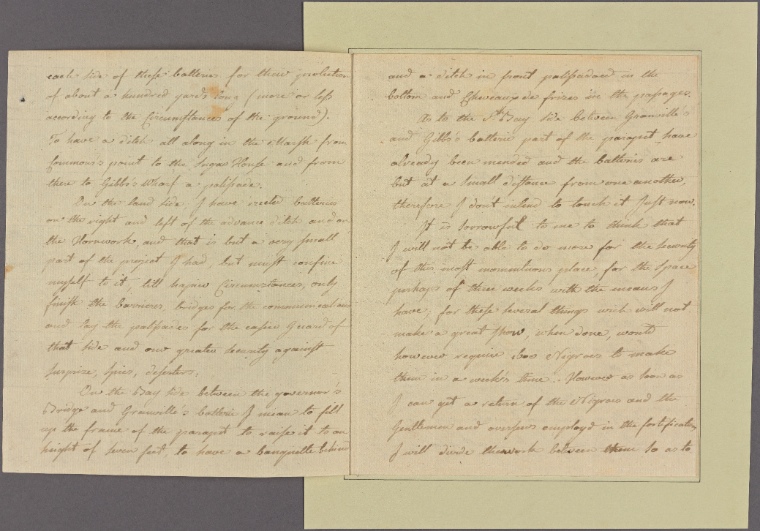 each side of these batteries for their protection
of about a hundred yards long (more or less
according to the Circumstances of the ground).
To have a ditch all along in the Marsh from
Commons's point to the Sugar House and from
there to Gibb's Wharf a palissade.
On the land side, I have erected batteries
on the right and left of the advance ditch and on
the Hornwork, and that is but a very small
part of the project I had, but must confine
myself to it till happier Circumstances, only
finish the barriers bridges for the communication
and lay the palissades for the easier Guard of
that side and our greater security against
Surprise, Spies, deserters.
On the Bay side between the governor's
Bridge and Granville's batterie I mean to fill
up the frame of the parapet to raise it to an
height of seven feet, to have a banquette behind
and a ditch in front palissadoed in the
bottom and Chevaux de frises in the passages.
As to the Bay side between Granville's
and Gibb's batteries part of the parapet have
already been mended and the batteries are
but at a Small distance from one another,
therefore I don't intend to touch it Just now.
It is sorrowful to me to think that
I will not be able to do more for the security
of this most momentuous place, for the space
perhaps of three weeks with the means I
have, for these several things wich will not
make a great Show, when done, would
however require 800 Nigroes to make
them in a week's time. However as soon as
I can get a return of the Nigroes and the
Gentlemen and overseers employd in the fortification
I will divide the work between them so as to